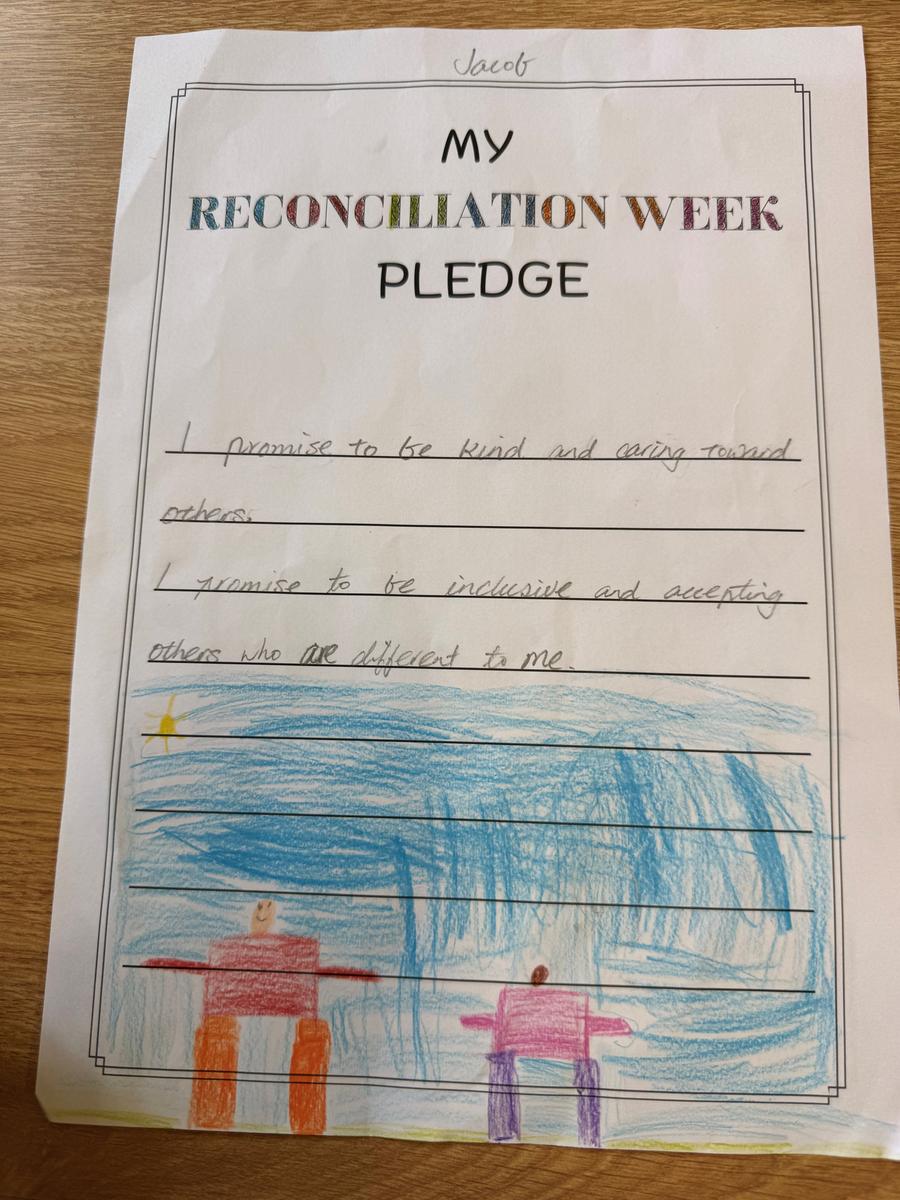 Jacob
MY
RECONCILIATION WEEK
PLEDGE
I promise to be kind and caring toward
others.
I promise to be inclusive and accepting
others who are different to me.